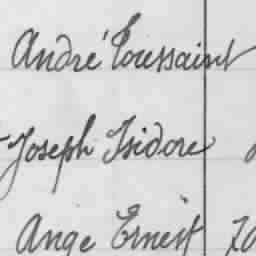 André Toussaint
Joseph Isidore
Ange Ernest